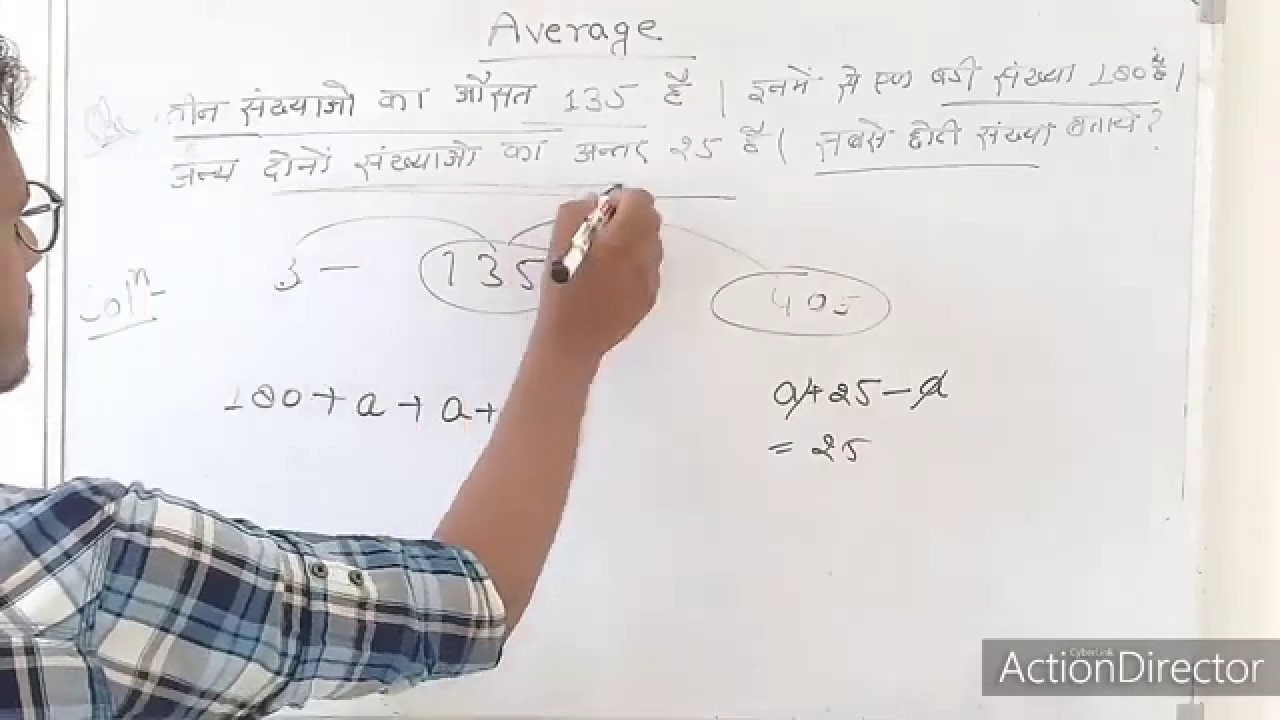 Average
तीन संख्याओ का औसत 135 है | इनमें से एक बडी संख्या 180 है |
अन्य दोनों संख्याओ का अन्तर 25 है | सबसे छोटी संख्या बताये ?
Solⁿ-
3 — 135
405
180 + a + a +
a + 25 - a
= 25
CyberLink
ActionDirector